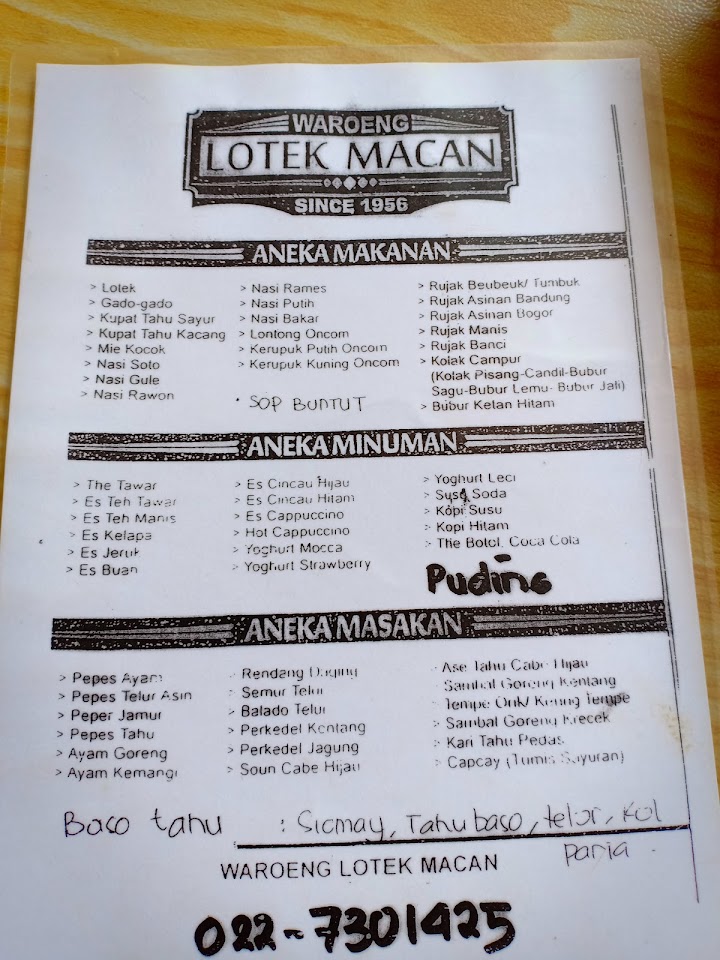 WAROENG
LOTEK MACAN
SINCE 1956
ANEKA MAKANAN
> Lotek
> Gado-gado
> Kupat Tahu Sayur
> Kupat Tahu Kacang
> Mie Kocok
> Nasi Soto
> Nasi Gule
> Nasi Rawon
> Nasi Rames
> Nasi Putih
> Nasi Bakar
> Lontong Oncom
> Kerupuk Putih Oncom
> Kerupuk Kuning Oncom
• SOP BUNTUT
> Rujak Beubeuk/ Tumbuk
> Rujak Asinan Bandung
> Rujak Asinan Bogor
> Rujak Manis
> Rujak Banci
> Kolak Campur
(Kolak Pisang-Candil-Bubur
Sagu-Bubur Lemu- Bubur Jali)
> Bubur Ketan Hitam
ANEKA MINUMAN
> The Tawar
> Es Teh Tawar
> Es Teh Manis
> Es Kelapa
> Es Jeruk
> Es Buah
> Es Cincau Hijau
> Es Cincau Hitam
> Es Cappuccino
> Hot Cappuccino
> Yoghurt Mocca
> Yoghurt Strawberry
> Yoghurt Leci
> Susu Soda
> Kopi Susu
> Kopi Hitam
> The Botol, Coca Cola
Puding
ANEKA MASAKAN
> Pepes Ayam
> Pepes Telur Asin
> Peper Jamur
> Pepes Tahu
> Ayam Goreng
> Ayam Kemangi
> Rendang Daging
> Semur Telur
> Balado Telur
> Perkedel Kentang
> Perkedel Jagung
> Soun Cabe Hijau
> Ase Tahu Cabe Hijau
> Sambal Goreng Kentang
> Tempe Orik/ Kering Tempe
> Sambal Goreng Krecek
> Kari Tahu Pedas
> Capcay (Tumis Sayuran)
Baso tahu : Siomay, Tahu baso, telor, kol
paria
WAROENG LOTEK MACAN
022-7301425